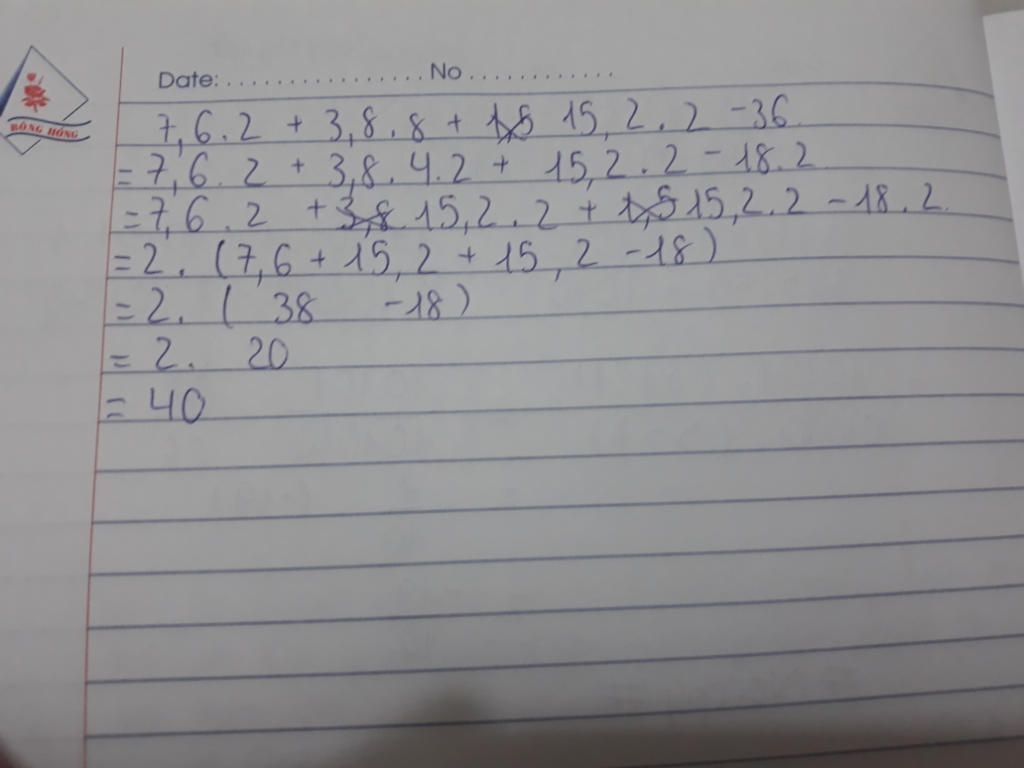 BÔNG HỒNG
Date:................No.............
7,6.2 + 3,8.8 + 15,2.2 -36
= 7,6.2 + 3,8.4.2 + 15,2.2 - 18.2
= 7,6.2 + 15,2.2 + 15,2.2 - 18.2
= 2.(7,6 + 15,2 + 15,2 -18)
= 2.( 38 -18)
= 2. 20
= 40